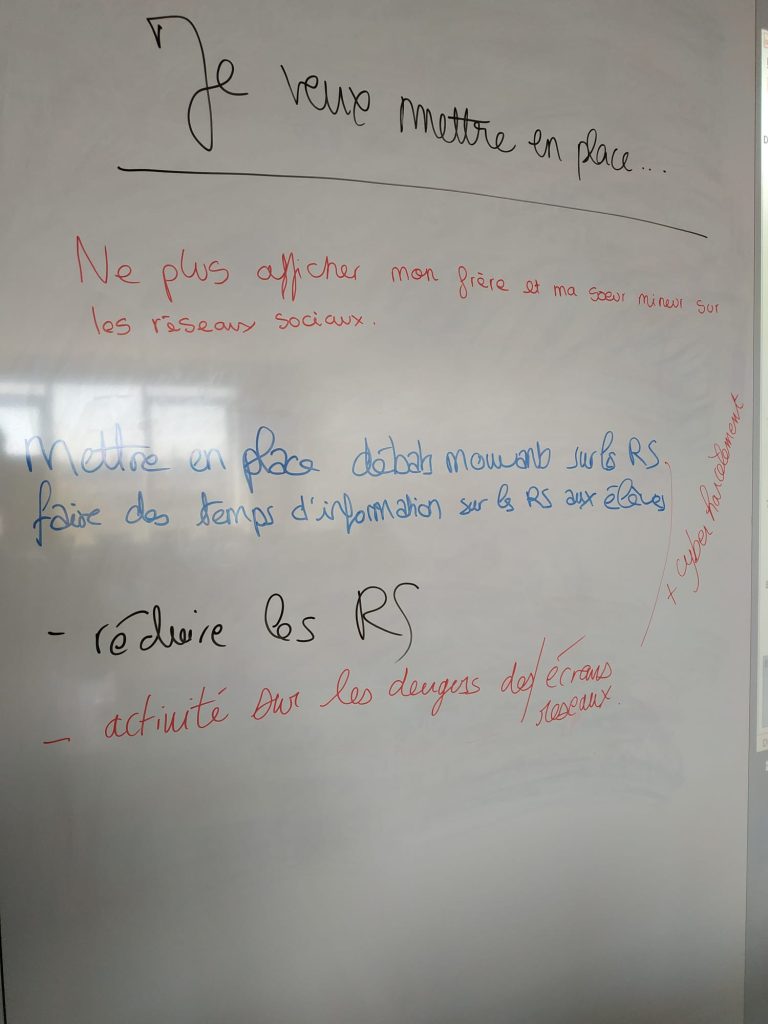 Je veux mettre en place...
Ne plus afficher mon frère et ma soeur mineur sur
les réseaux sociaux.
Mettre en place débats mouvants sur les RS
faire des temps d'information sur les RS aux élèves
+ cyber harcèlement
- réduire les RS
- activité sur les dangers des/écrans
reseaux.